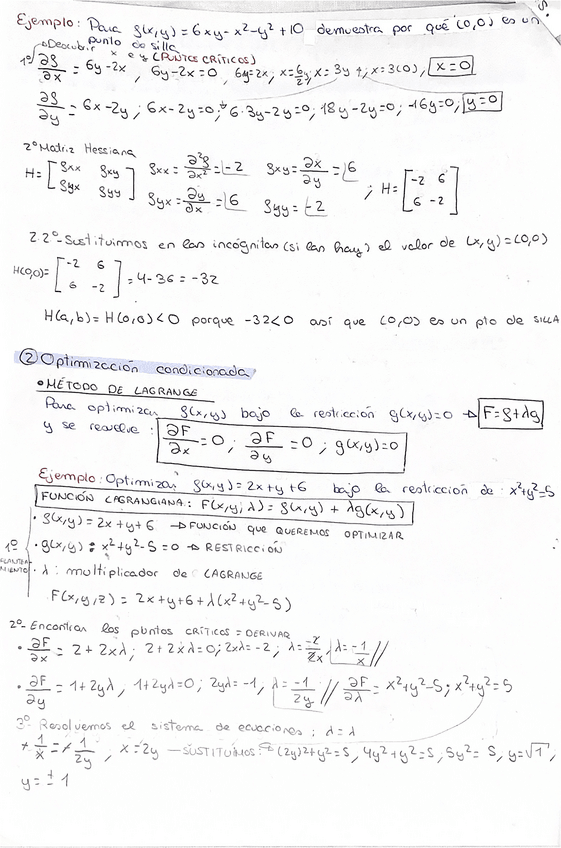 Ejemplo: Para f(x,y)=6xy-x²-y²+10 demuestra por qué (0,0) es un
punto de silla
1º Descubrir x e y (PUNTOS CRÍTICOS)
∂f/∂x = 6y-2x, 6y-2x=0, 6y=2x; x=6/2 y; x=3y; x=3(0), x=0
∂f/∂y = 6x-2y; 6x-2y=0; 6·3y-2y=0; 18y-2y=0; -16y=0; y=0
2º Matriz Hessiana
H=[fxx fxy
fyx fyy]
fxx= ∂²f/∂x² = -2 fxy= ∂x/∂y = 6
fyx= ∂y/∂x = 6 fyy= -2
; H=[-2 6
6 -2]
2.2º- Sustituimos en las incógnitas (si las hay) el valor de (x,y)=(0,0)
H(0,0)=[-2 6
6 -2] = 4-36 = -32
H(a,b)= H(0,0)<0 porque -32<0 así que (0,0) es un pto de SILLA
② Optimización condicionada
• MÉTODO DE LAGRANGE
Para optimizar f(x,y) bajo la restricción g(x,y)=0 → F=f+λg
y se resuelve: ∂F/∂x=0; ∂F/∂y=0; g(x,y)=0
Ejemplo: Optimizar f(x,y)=2x+y+6 bajo la restricción de: x²+y²=5
FUNCIÓN LAGRANGIANA: F(x,y;λ)= f(x,y) + λg(x,y)
1º PLANTEAMIENTO
• f(x,y)=2x+y+6 → FUNCIÓN QUE QUEREMOS OPTIMIZAR
• g(x,y): x²+y²-5=0 → RESTRICCIÓN
• λ: multiplicador de LAGRANGE
F(x,y,z) = 2x+y+6+λ(x²+y²-5)
2º- Encontrar los puntos CRÍTICOS = DERIVAR
• ∂F/∂x = 2+2xλ; 2+2xλ=0; 2xλ=-2, λ=-2/2x, λ=-1/x //
• ∂F/∂y = 1+2yλ, 1+2yλ=0; 2yλ=-1, λ=-1/2y // ∂F/∂λ = x²+y²-5; x²+y²=5
3º Resolvemos el sistema de ecuaciones: λ=λ
+1/x=+1/2y, x=2y —SUSTITUIMOS: (2y)²+y²=5, 4y²+y²=5, 5y²=5, y=√1,
y=±1